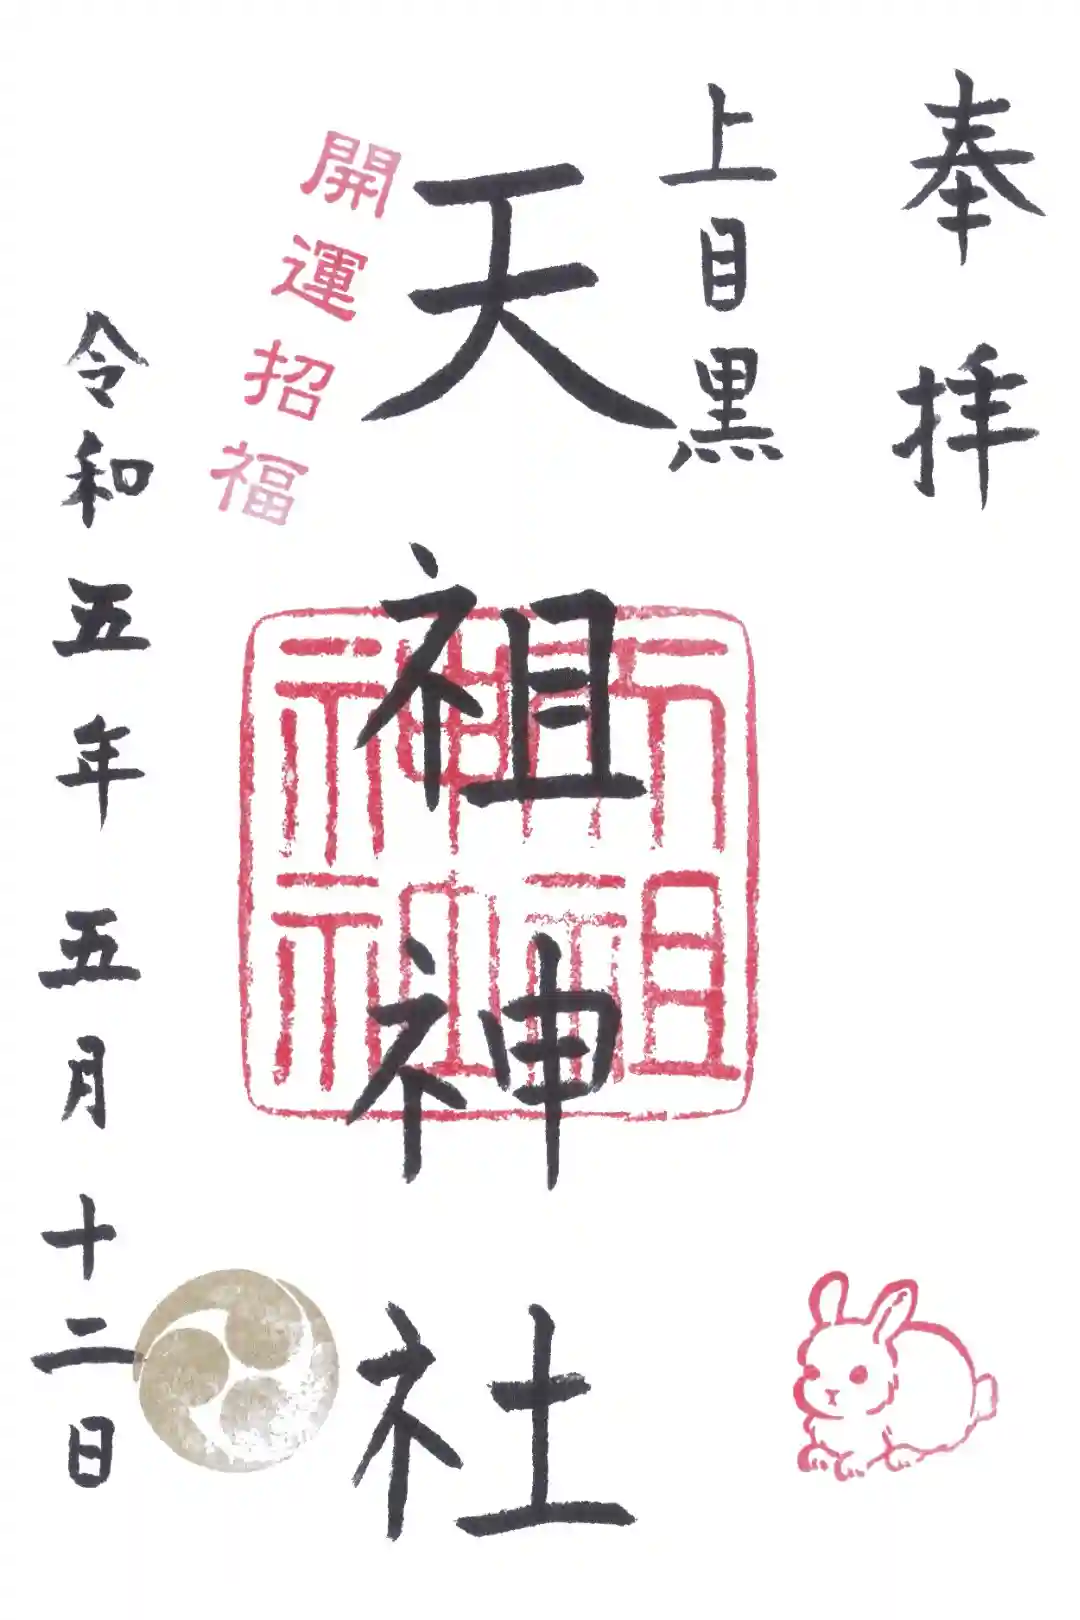 奉拝
上目黒
天祖神社
天祖神社
開運招福
令和五年五月十二日